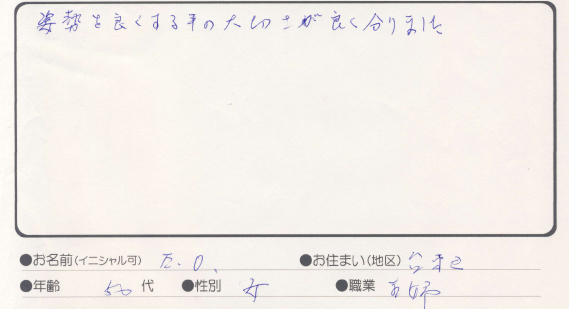 姿勢を良くする事の大切さが良く分りました
●お名前(イニシャル可) E.O. ●お住まい(地区)
●年齢 50代 ●性別 女 ●職業 主婦